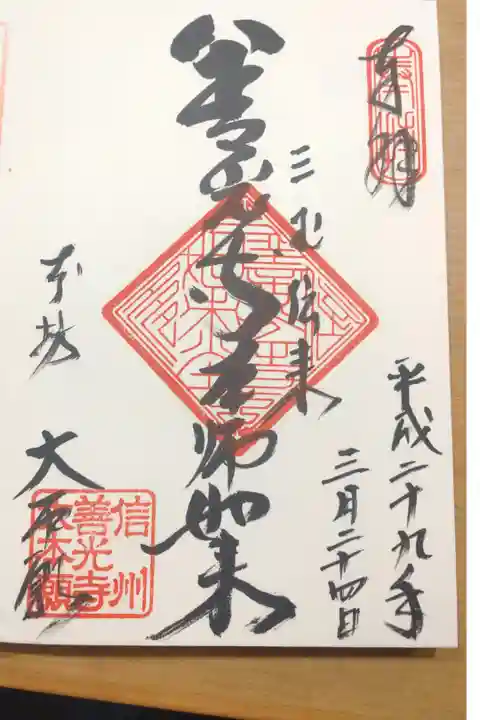 奉拝
平成二十九年
三月二十四日
三国伝来
善光寺本師如来
本坊
大本願
信州
善光寺
大本願